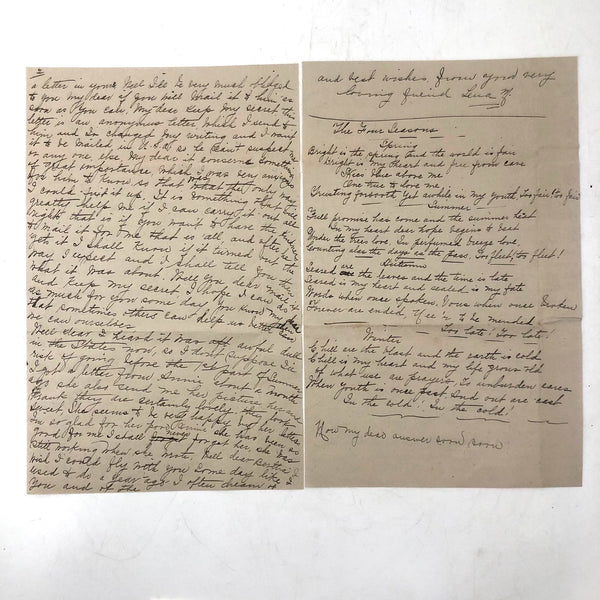 a letter in yours Well I'll be very much obliged
to you my dear if you will Mail it to him as
soon as you can My dear keep my secret this
letter is an anonymous letter Which I send to
him and so changed my writing and I want
it to be mailed in U.S.A. so he can't suspect
or any one else My dear it concerns something
of great importance, Which I was very anxious
for him to know so that was the only way
I could fix it up. It is something that will
greater help me if I saw carry it out all
right that is if you want to have the kindness
to Mail it for me that is all and after he
gets it I shall know if it turned out the
way I expect and I shall tell you then
what it was about. Will you dear mail it
and keep my secret. I hope I can do
as much for you some day you know my dear
that sometimes others can help us better than
we can ourselves
Well dear I heard it was awful dull
in the States now, so I don't suppose I'll
risk it going before the 1st part of Summer
I got a letter from Annie about a month
ago she also send me her picture, her and
Frank they are sertenly lovely they look
sweet She seems to be very happy by her letter
Im so glad for her poor Annie she has been so
good for me I shall never forget her, she was
still working when she wrote, Well dear Bertha I
wish I could fly with you some day like I
used to do a year ago I often dream of
you and of the
and best wishes from your very
loving freind Lena M.
The Four Seasons
Spring
Bright is the spring and the world is fair
Bright is my heart and free from care
Skies blue above me
One true to love me
Trusting forsooth yet awhile in my youth, Too fair! too fair!
Summer
Full promise has come and the summer heat
In my heart dear hope begins to beat
Under the trees love, In perfumed breeze love,
Counting alas the days as they pass. Too fleet, too fleet!
Autumn
Seared are the leaves and the time is late
Seared is my heart and sealed is my fate
Words when once spoken, Vows when once broken
Forever are ended, If e'er to be mended
Too late! Too late!
Winter
Chill are the blast and the earth is cold
Chill is my heart and my life grows old
of what use are prayers, To unburden cares
When youth is once past and out are cast
In the cold! In the cold!
Now my dear answer soon, soon